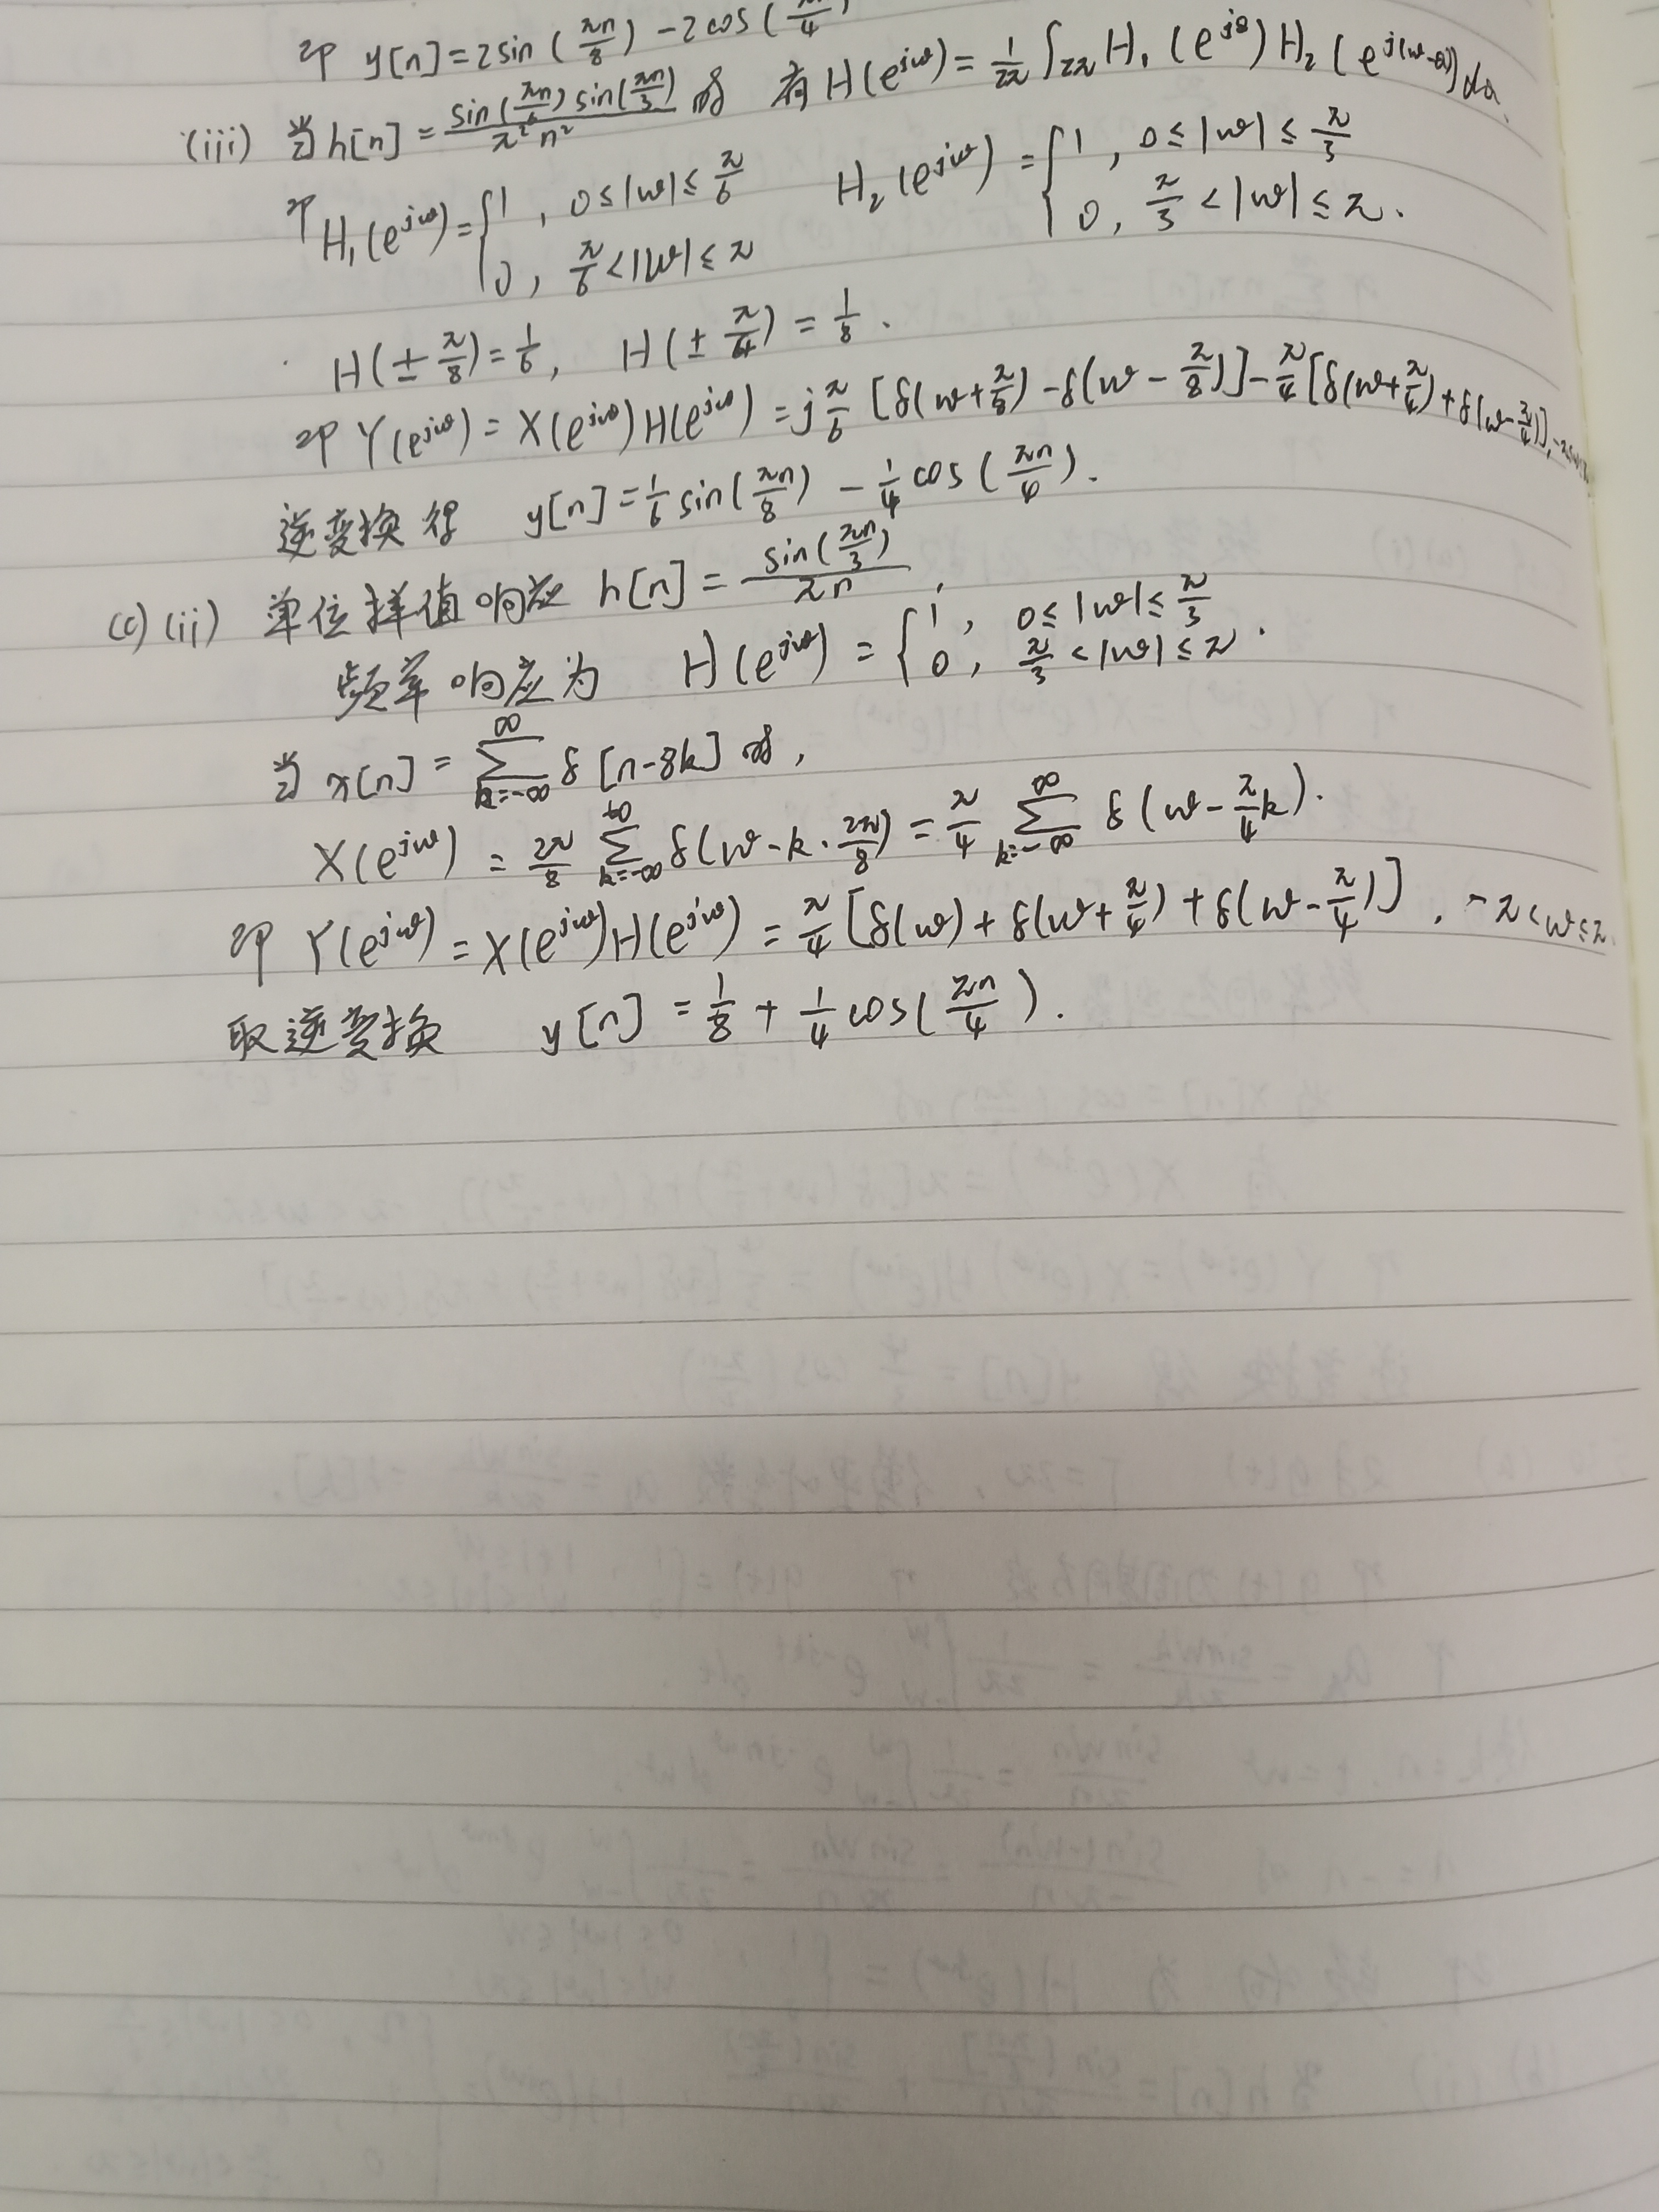 即 y[n]=2sin(πn/8)-2cos(πn/4)
(iii) 当h[n]=sin(πn/6)sin(πn/3)/π²n² 时 有H(e^{jω})=1/2π ∫_{2π} H₁(e^{jθ})H₂(e^{j(ω-θ)})dθ
即 H₁(e^{jω})={1, 0≤|ω|≤π/6; 0, π/6<|ω|≤π H₂(e^{jω})={1, 0≤|ω|≤π/3; 0, π/3<|ω|≤π.
H(±π/8)=1/6, H(±π/4)=1/8.
即 Y(e^{jω})=X(e^{jω})H(e^{jω})=jπ/6[δ(ω+π/8)-δ(ω-π/8)]-π/4[δ(ω+π/4)+δ(ω-π/4)],
逆变换得 y[n]=1/6 sin(πn/8)-1/4 cos(πn/4).
(c)(ii) 单位样值响应 h[n]=sin(πn/3)/πn,
频率响应为 H(e^{jω})={1, 0≤|ω|≤π/3; 0, π/3<|ω|≤π.
当 x[n]=∑_{k=-∞}^{∞} δ[n-8k]时,
X(e^{jω})=2π/8 ∑_{k=-∞}^{+∞} δ(ω-k·2π/8)=π/4 ∑_{k=-∞}^{∞} δ(ω-π/4 k).
即 Y(e^{jω})=X(e^{jω})H(e^{jω})=π/4[δ(ω)+δ(ω+π/4)+δ(ω-π/4)], -π<ω≤π
取逆变换 y[n]=1/8+1/4 cos(πn/4).